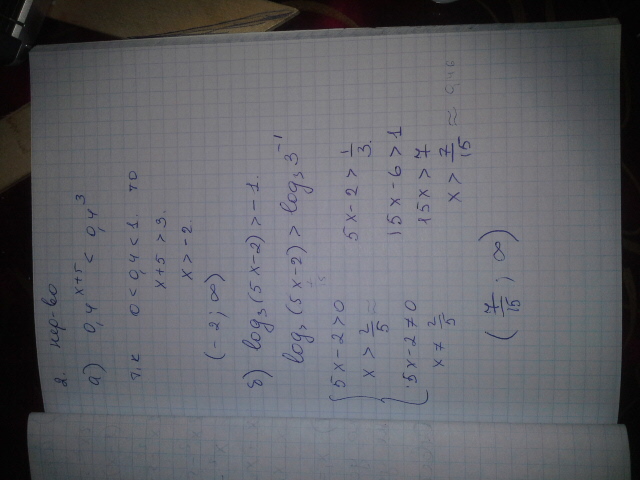 2. нер-во
а) 0,4^{x+5} < 0,4^3
т.к 0 < 0,4 < 1. то
x+5 > 3.
x > -2.
(-2; ∞)
б) log₃(5x-2) > -1.
log₃(5x-2) > log₃ 3^{-1}
{ 5x-2 > 0
x > 2/5 ≈
5x-2 ≠ 0
x ≠ 2/5
5x-2 > 1/3.
15x-6 > 1
15x > 7
x > 7/15 ≈ 0,46
(7/15; ∞)